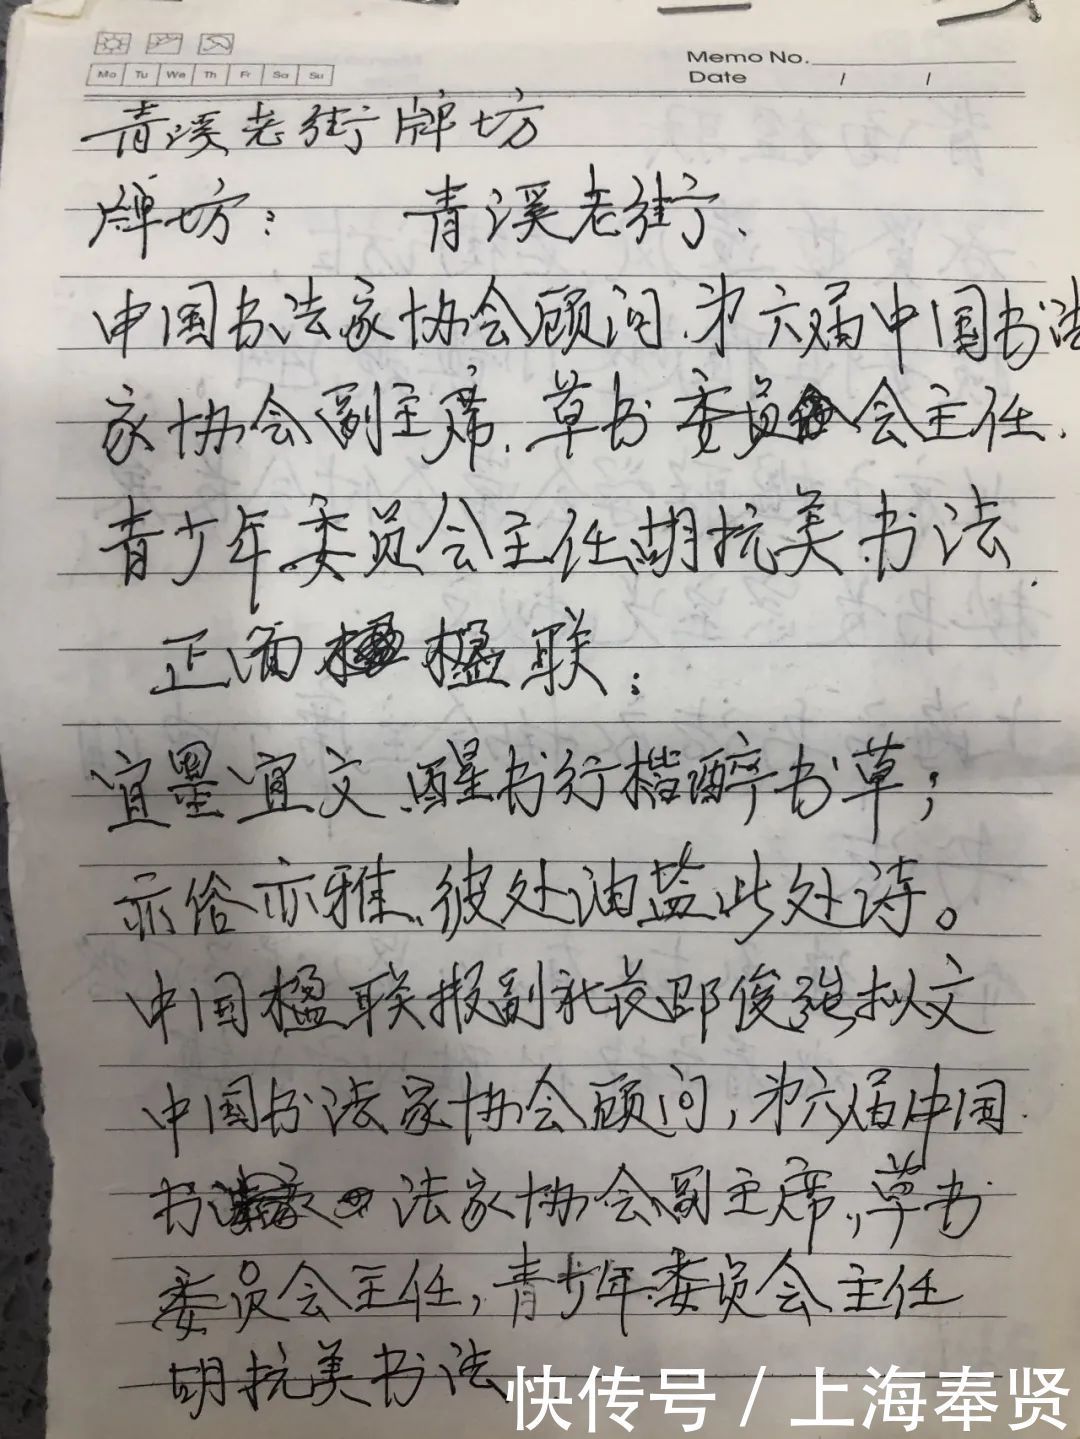 Memo No.
Mo Tu We Th Fr Sa Su
Date / /
青溪老街牌坊
牌坊： 青溪老街、
中国书法家协会顾问、第六届中国书法
家协会副主席、草书委员会主任、
青少年委员会主任胡抗美书法、
正面楹联：
宜墨宜文、醒书行楷醉书草；
亦俗亦雅、彼处油盐此处诗。
中国楹联报副社长邵俊强拟文
中国书法家协会顾问，第六届中国
书法家协会副主席，草书
委员会主任，青少年委员会主任
胡抗美书法、
快传号 / 上海奉贤